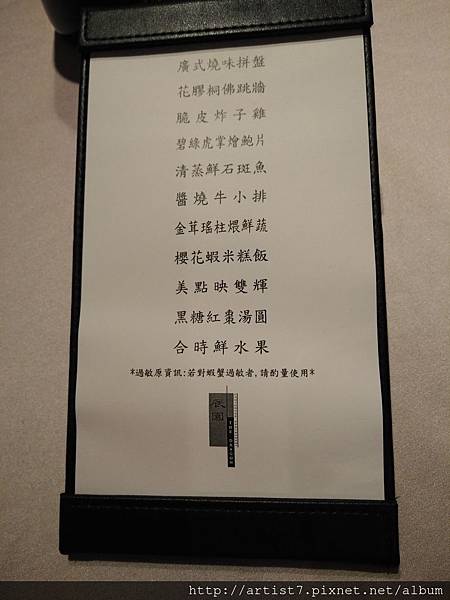 廣式燒味拼盤
花膠桐佛跳牆
脆皮炸子雞
碧綠虎掌燴鮑片
清蒸鮮石斑魚
醬燒牛小排
金茸瑤柱煨鮮蔬
櫻花蝦米糕飯
美點映雙輝
黑糖紅棗湯圓
合時鮮水果
*過敏原資訊:若對蝦蟹過敏者,請酌量使用*
http://artist7.pixnet.net/album